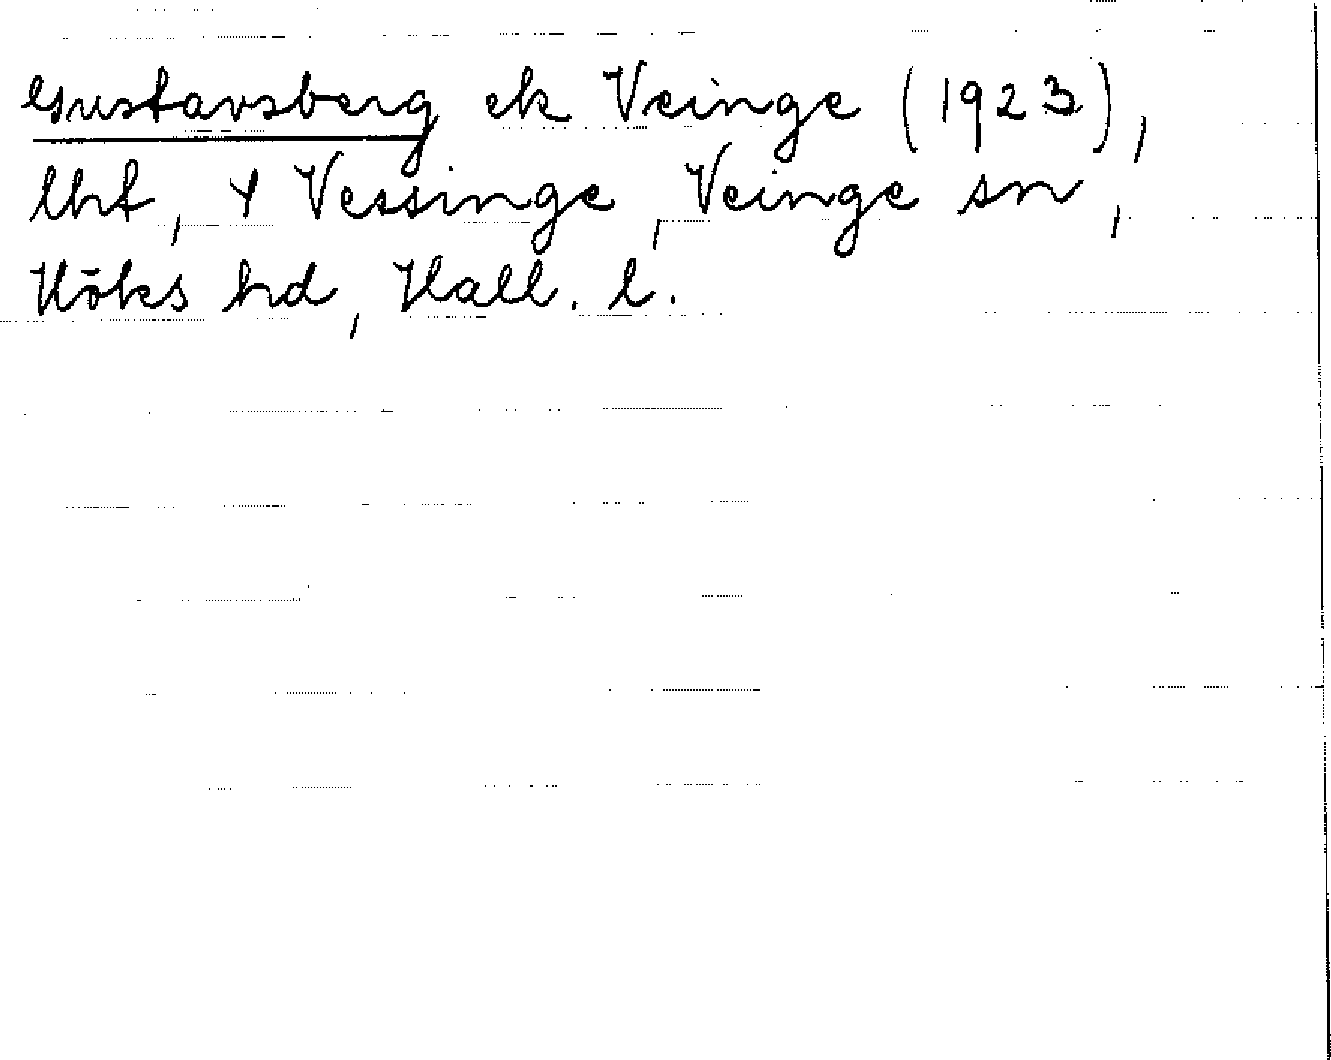 Gustavsberg ek Veinge (1923),
lht, 4 Vessinge, Veinge sn,
Höks hd, Hall. l.